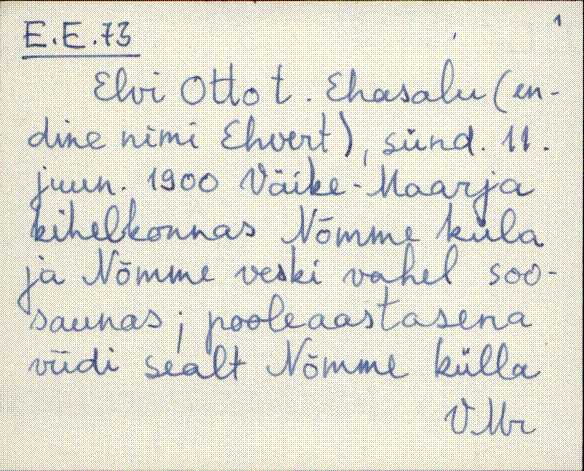 1
E.E.73
Elvi Otto t. Ehasalu (en-
dine nimi Ehvert), sünd. 11.
juun. 1900 Väike-Maarja
kihelkonnas Nõmme küla
ja Nõmme veski vahel soo-
saunas; pooleaastasena
viidi sealt Nõmme külla
VMr